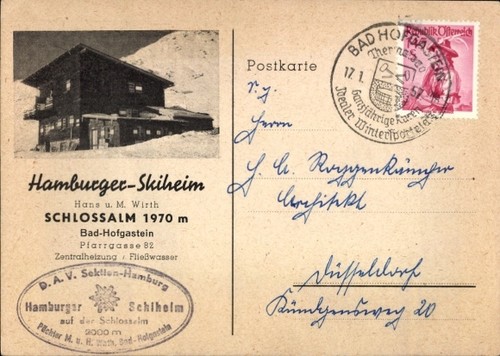 Hamburger-Skiheim
Hans u. M. Wirth
SCHLOSSALM 1970 m
Bad-Hofgastein
Pfarrgasse 82
Zentralheizung / Fließwasser
D. A. V. Sektion-Hamburg
Hamburger Schiheim
auf der Schlossalm
2000 m
Pächter M. u. H. Wirth, Bad-Hofgastein
Postkarte
BAD HOFGASTEIN
Thermalbad
17.1. 57
Ganzjährige Kurzeit
Idealer Wintersportplatz
Republik Österreich
Herrn
Architekt
Düsseldorf
20